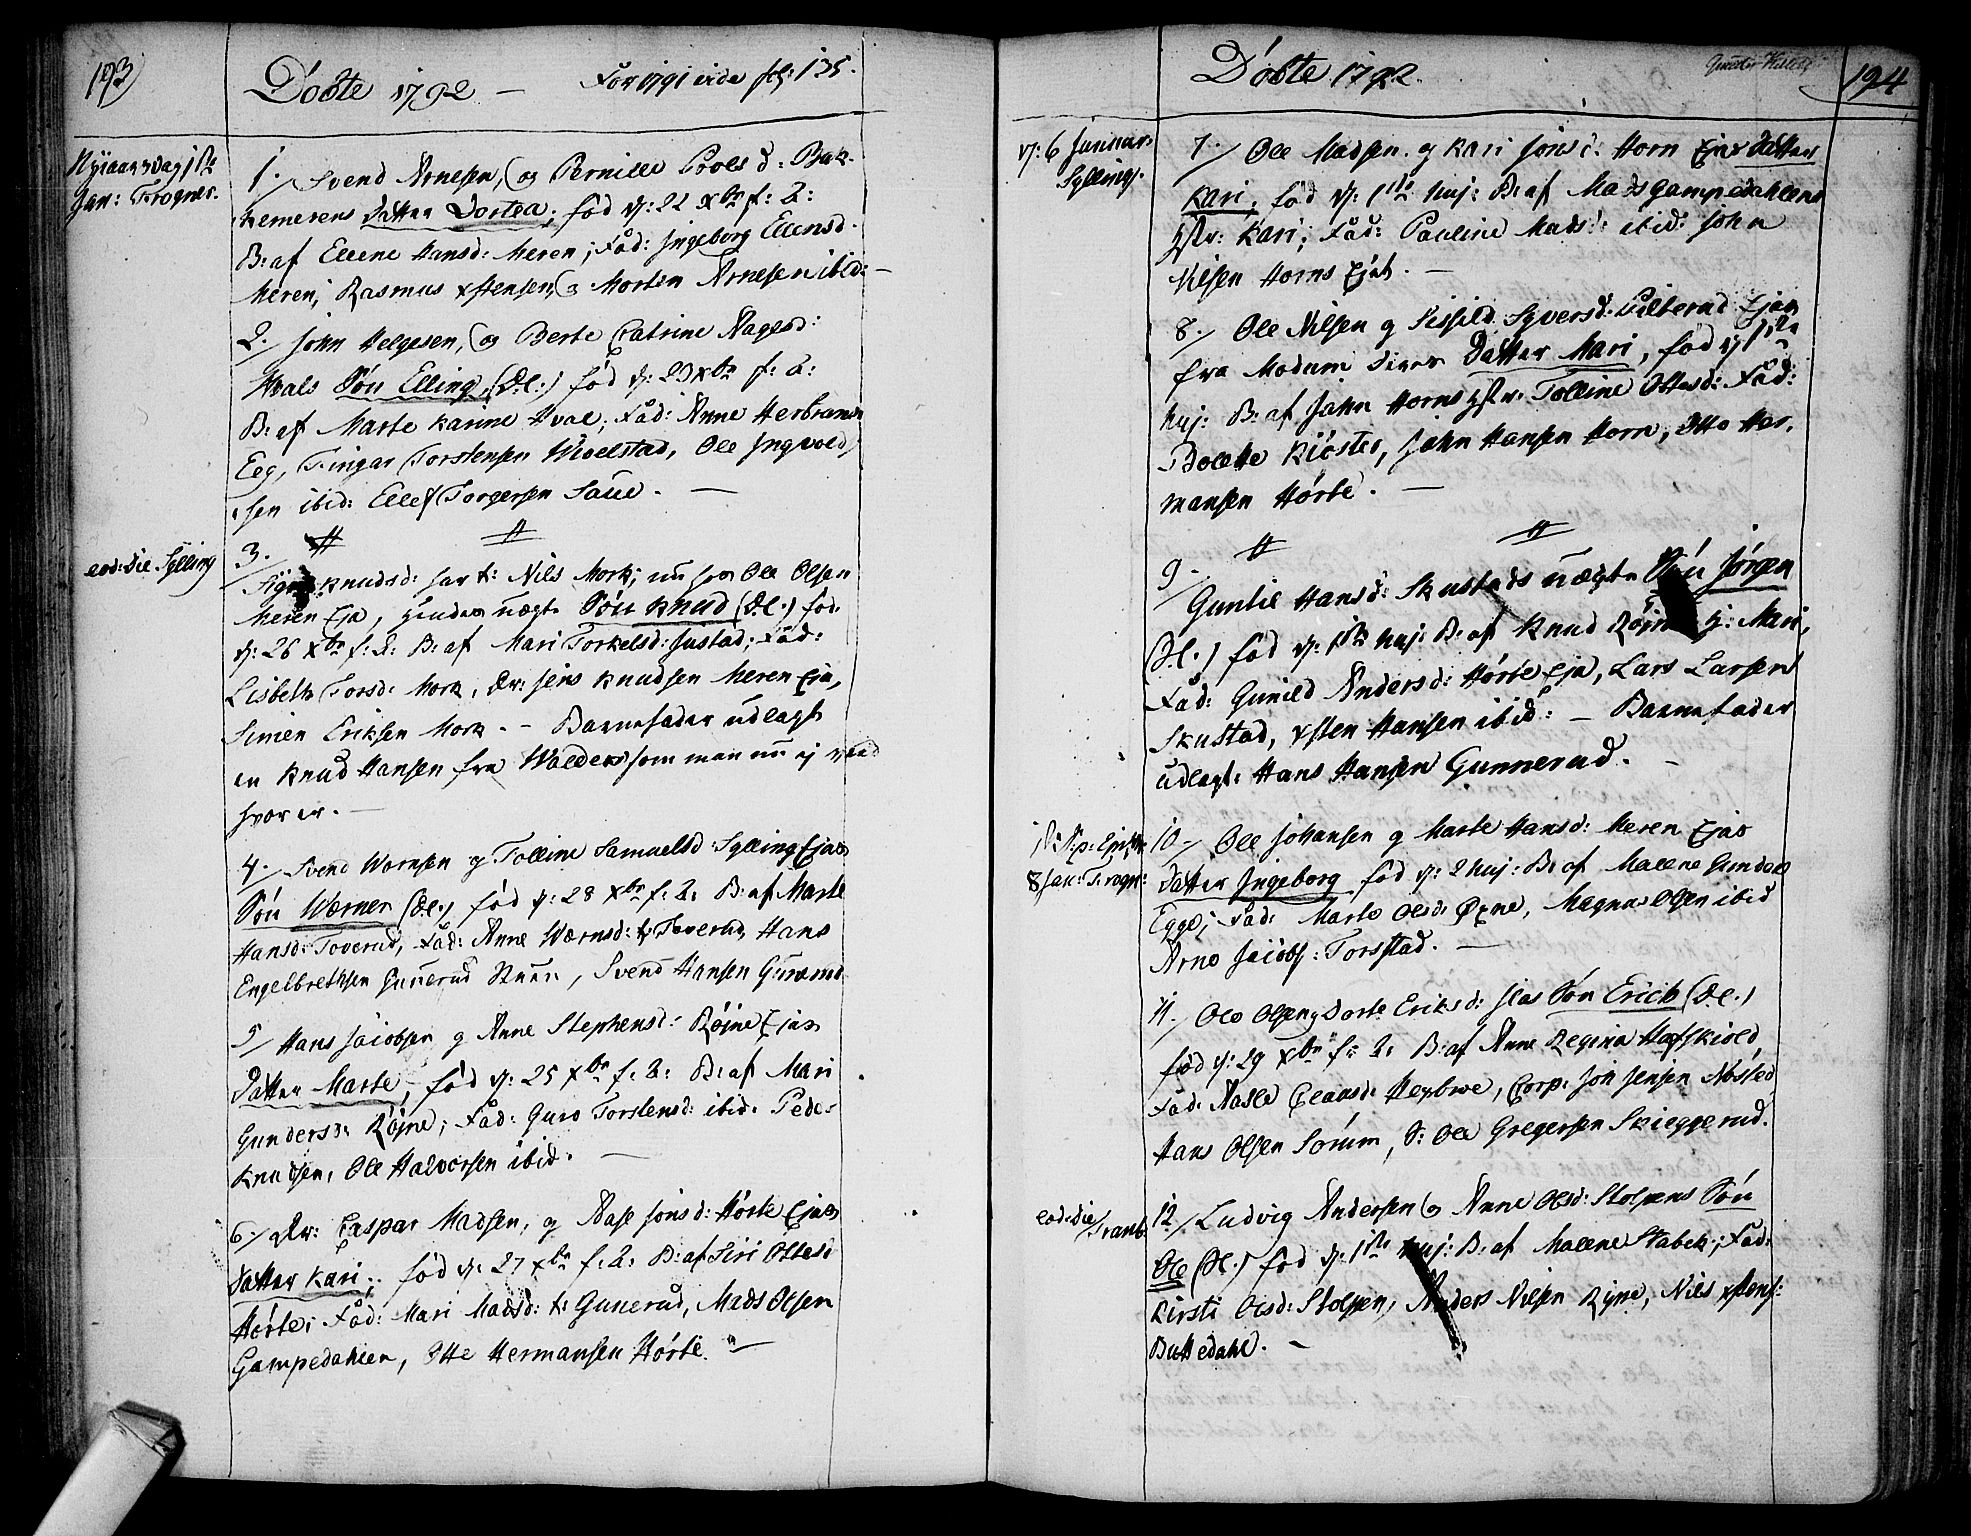 193
Döbte 1792 – For 1791 vide fol: 135.
Nyiaarsdag 1ste
Jan: Frogner.
1./ Svend Arnesen, og Pernille Povels d: Bak-
kemerens Datter Dortea, fød d: 22 Xbr f: A:
B: af Ellene Hansd: Meren; Fad: Ingeborg Ellensd.
Meren; Rasmus Xstensen, og Morten Arnesen ibid: –
2./ John Helgesen, og Berte Catrine Aagesd:
Hvals Søn Elling, (Dl.) fød d: 23 Xbr f: A:
B: af Marte Karine Hval; Fad: Anne Herbrands
Eeg, Fingar Torstensen Wivelstad, Ole Ingvold,
sen ibid: Ellef Torgersen Saue. –
eod: die Sylling
3./ Signe Knudsd: har t: Nils Mork; nu hos Ole Olsen
Meren Eja, hendes uægte Søn Knud (Dl.) fød
d: 26 Xbr f: A: B: af Mari Torkelsd: Justad; Fad:
Lisbeth Torsd: Mork, Dr: Jens Knudsen Meren Eja,
Simen Eriksen Mork. – Barnefader udlagt
en Knud Hansen fra Walders som man nu ej veed
hvor er. –
4./ Svend Wernsen og Tolline Samuelsd: Sylling Ejas
Søn Werner (Dl.) fød d: 28 Xbr f: A: B: af Marte
Hansd: Toverud, Fad: Anne Wernsd: t: Toverud, Hans
Engelbrethsen Gunerud, Svend Hansen Gunerud
5./ Hans Jacobsen og Anne Stephensd: Röjne Ejas
Datter Marte, fød d: 25 Xbr f: A: B: af Mari
Gundersd: Röjne; Fad: Guro Torstensd: ibid: Peder
Knudsen, Ole Halvorsen ibid. –
6./ Dr: Caspar Madsen, og Aase Jonsd: Hörte Ejas
Datter Kari; fød d: 27 Xbr f: A: B: af Siri Ottesd
Hörte; Fad: Mari Madsd: t: Gunerud, Mads Olsen
Gampedahlen, Otte Hermansen Hörte. –
Döbte 1792.
194
d: 6 Januar.
Sylling.
7./ Ole Madsen og Kari Jonsd: Horn Ejas Datter
Kari, fød d: 1ste huj: B: af Mads Gampedahlens
Hstr: Kari; Fad: Pauline Madsd: ibid: John
Nilsen Horns Eja. –
8./ Ole Nilsen og Sissild Syversd: Ejas
fra Modum Datter Mari, fød d: 1ste
huj: B: af John Horns Hstr: Tolline Ottesd: Fad:
Bolette Kiöster, John Hansen Horn, Otto Her,
mansen Hörte. –
9./ Gunlie Hansd: Skustads uægte Søn Jörgen
(Dl.) fød d: 1ste huj: B: af Knud Röjne H: Mari,
Fad: Gunild Andersd: Hörte Eja, Lars Larsen
Skustad, Xsten Hansen ibid: – Barnefader
udlagt Hans Hansen Gunnerud. –
8 Jan: Frogn:
10./ Ole Johansen og Marte Hansd: Meren Ejas
Datter Ingeborg fød d: 2 huj: B: af Malene Gunders
Egge; Fad: Marte Olsd: Øxne, Magnus Olsen ibid
Arne Jacobs: Torsstad. –
11./ Ole Olsen og Dorte Eriksd: Jlas Søn Erich (Dl.)
fød d: 29 Xbr f: A: B: af Anne Regina Hafskiold,
Fad: Aasle Claasd: Heybroe, Corp: Jon Jensen Nösted
Hans Olsen Sörum, S: Ole Gregersen Skieggerud.
eod: die Tranb:
12./ Ludvig Andersen og Anne Olsd: Stolpens Søn
Ole (Dl.) fød d: 1ste huj: B: af Malene Stabek; Fad:
Kirsti Olsd: Stolpen, Anders Nilsen Röjne, Nils Xstens:
Buttedahl. –